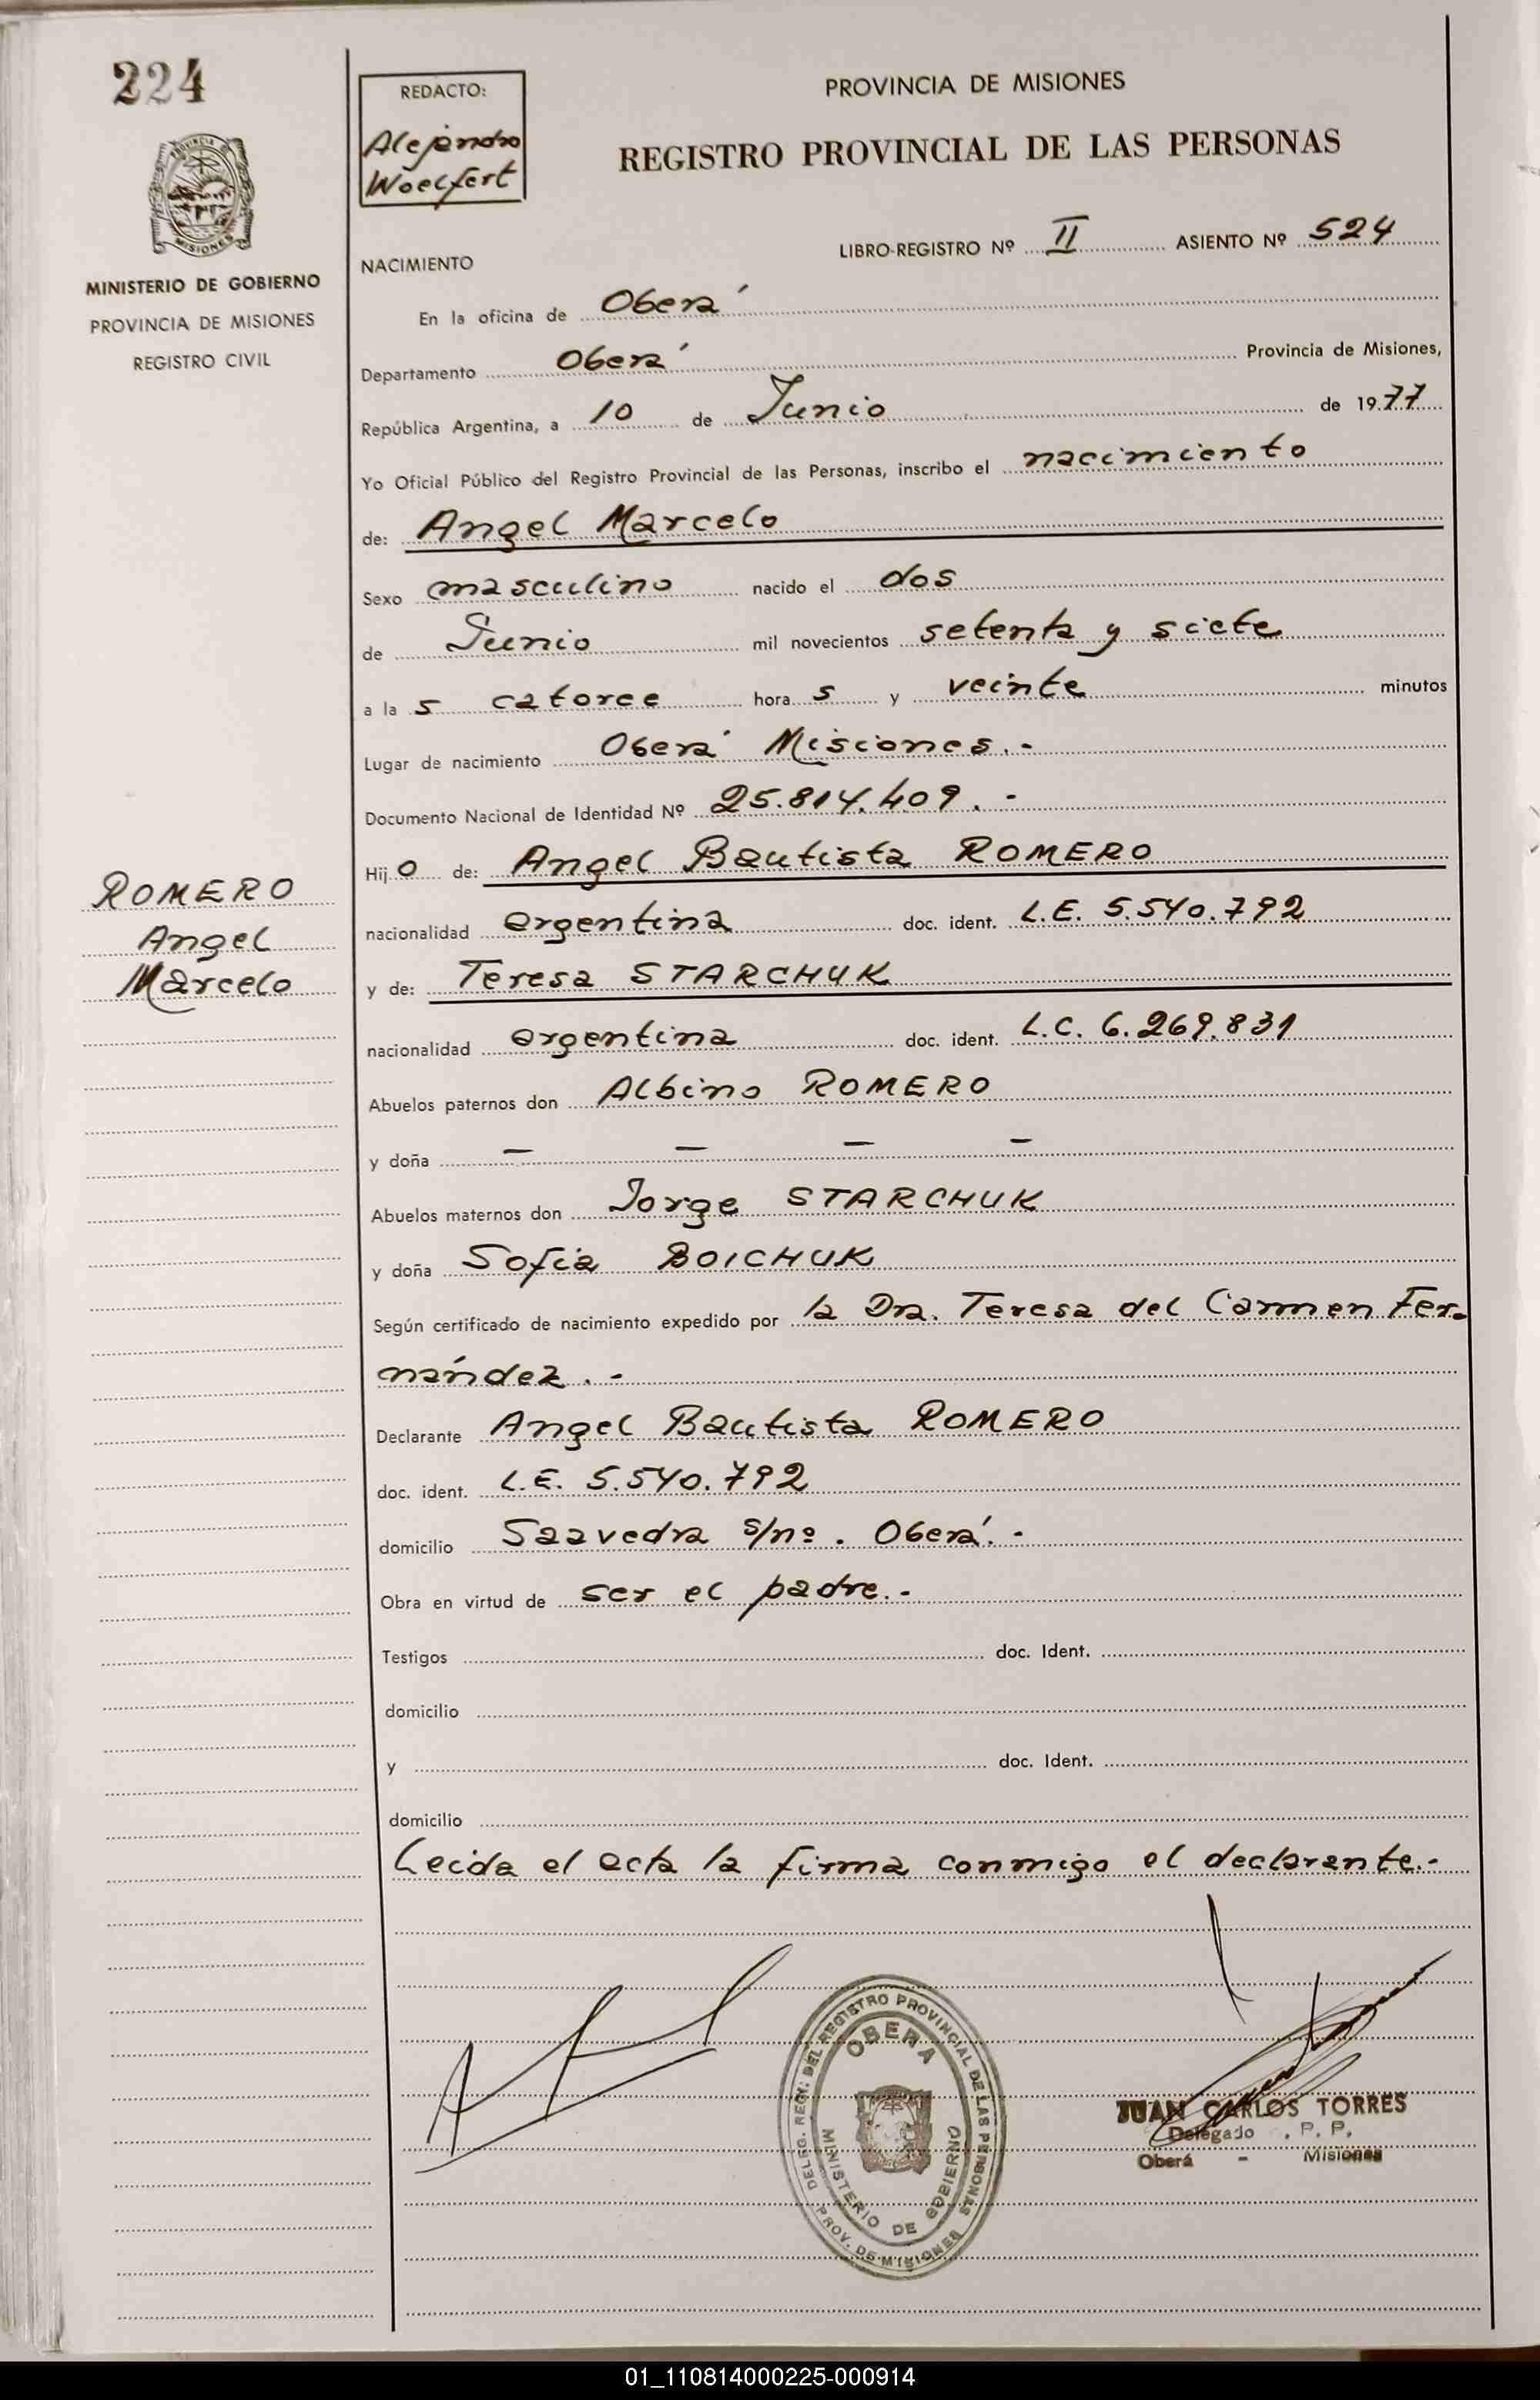 224
PROVINCIA DE MISIONES
MINISTERIO DE GOBIERNO
PROVINCIA DE MISIONES
REGISTRO CIVIL
ROMERO
Angel
Marcelo
REDACTO:
Alejandro
Woelfert
PROVINCIA DE MISIONES
REGISTRO PROVINCIAL DE LAS PERSONAS
LIBRO-REGISTRO Nº II ASIENTO Nº 524
NACIMIENTO
En la oficina de Oberá
Departamento Oberá Provincia de Misiones,
República Argentina, a 10 de Junio de 1977
Yo Oficial Público del Registro Provincial de las Personas, inscribo el nacimiento
de: Angel Marcelo
Sexo masculino nacido el dos
de Junio mil novecientos setenta y siete
a la s catorce hora s y veinte minutos
Lugar de nacimiento Oberá Misiones.-
Documento Nacional de Identidad Nº 25.814.409.-
Hij o de: Angel Bautista ROMERO
nacionalidad argentina doc. ident. L.E. 5.540.792
y de: Teresa STARCHUK
nacionalidad argentina doc. ident. L.C. 6.269.831
Abuelos paternos don Albino ROMERO
y doña — — — —
Abuelos maternos don Jorge STARCHUK
y doña Sofia BOICHUK
Según certificado de nacimiento expedido por la Dra. Teresa del Carmen Fer-
nández.-
Declarante Angel Bautista ROMERO
doc. ident. L.E. 5.540.792
domicilio Saavedra s/nº. Oberá.-
Obra en virtud de ser el padre.-
Testigos doc. Ident.
domicilio
y doc. Ident.
domicilio
Leida el acta la firma conmigo el declarante.-
DELEG. REGI. DEL REGISTRO PROVINCIAL DE LAS PERSONAS
OBERA
MINISTERIO DE GOBIERNO
PROV. DE MISIONES
JUAN CARLOS TORRES
Delegado . P. P.
Oberá - Misiones
01_110814000225-000914